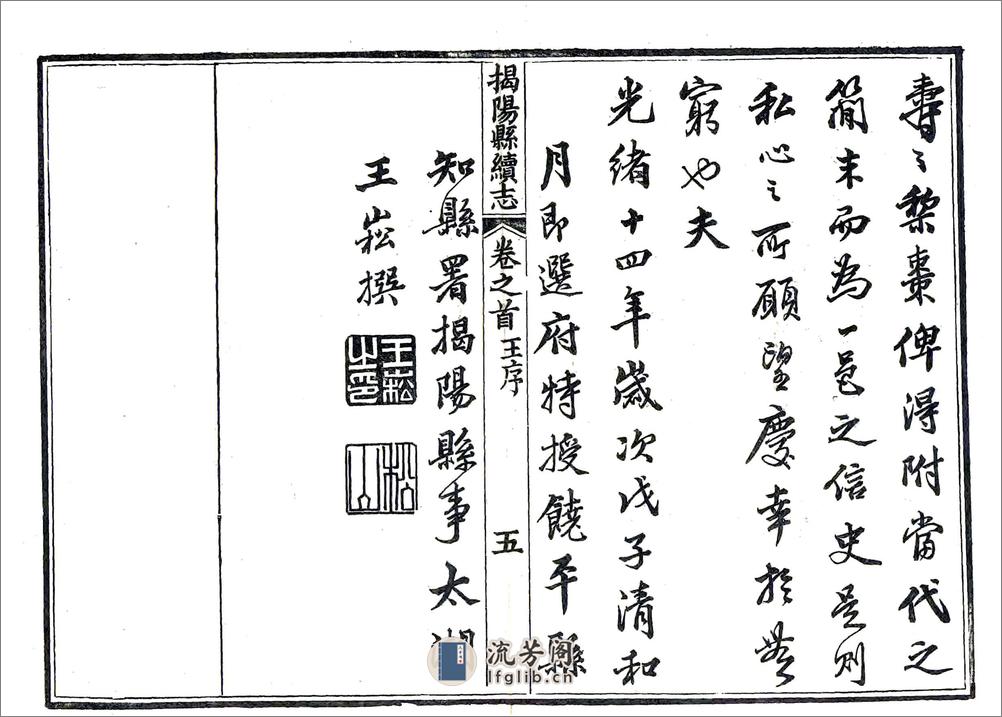 壽之黎棗俾得附當代之
簡末而為一邑之信史是則
私心之所願望慶幸於無
窮也夫
光緒十四年歲次戊子清和
月即選府特授饒平縣
揭陽縣續志 卷之首 王序 五
知縣署揭陽縣事太湖
王崧撰
王崧之印
崧山
流芳阁
lfglib.cn